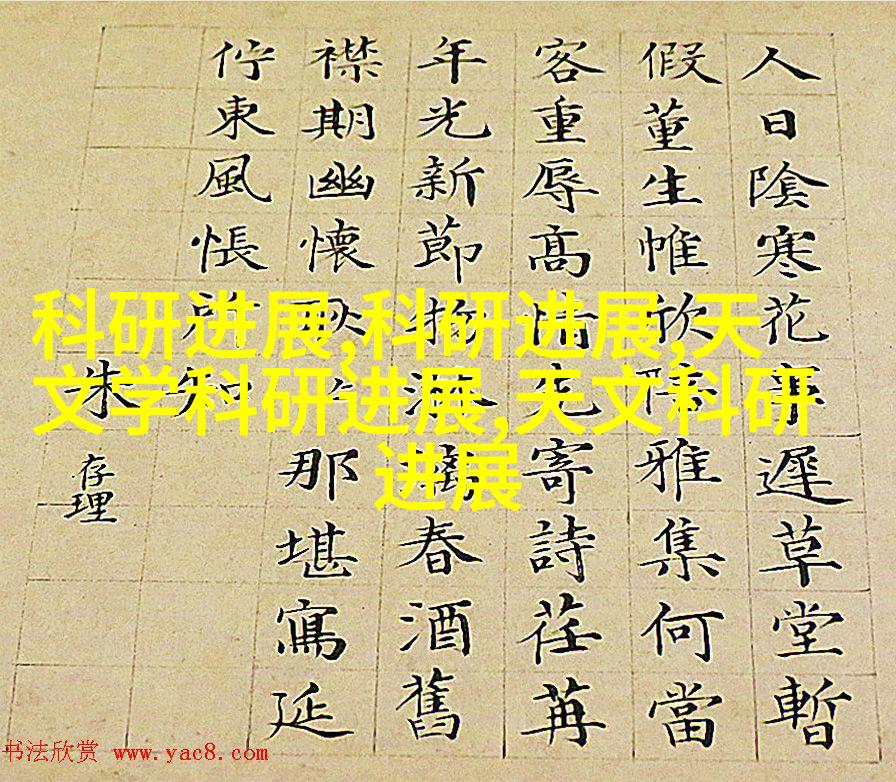 人日陰寒花事遲草堂暫
假董生帷欣陪雅集何當
客重辱高情先寄詩荏苒
年光新節物淋漓春酒舊
襟期幽懷耿々那堪寫延
佇東風悵所知
朱存理
科研进展,科研进展,天
文学科研进展,天文科研
进展
书法欣赏 www.yac8.com